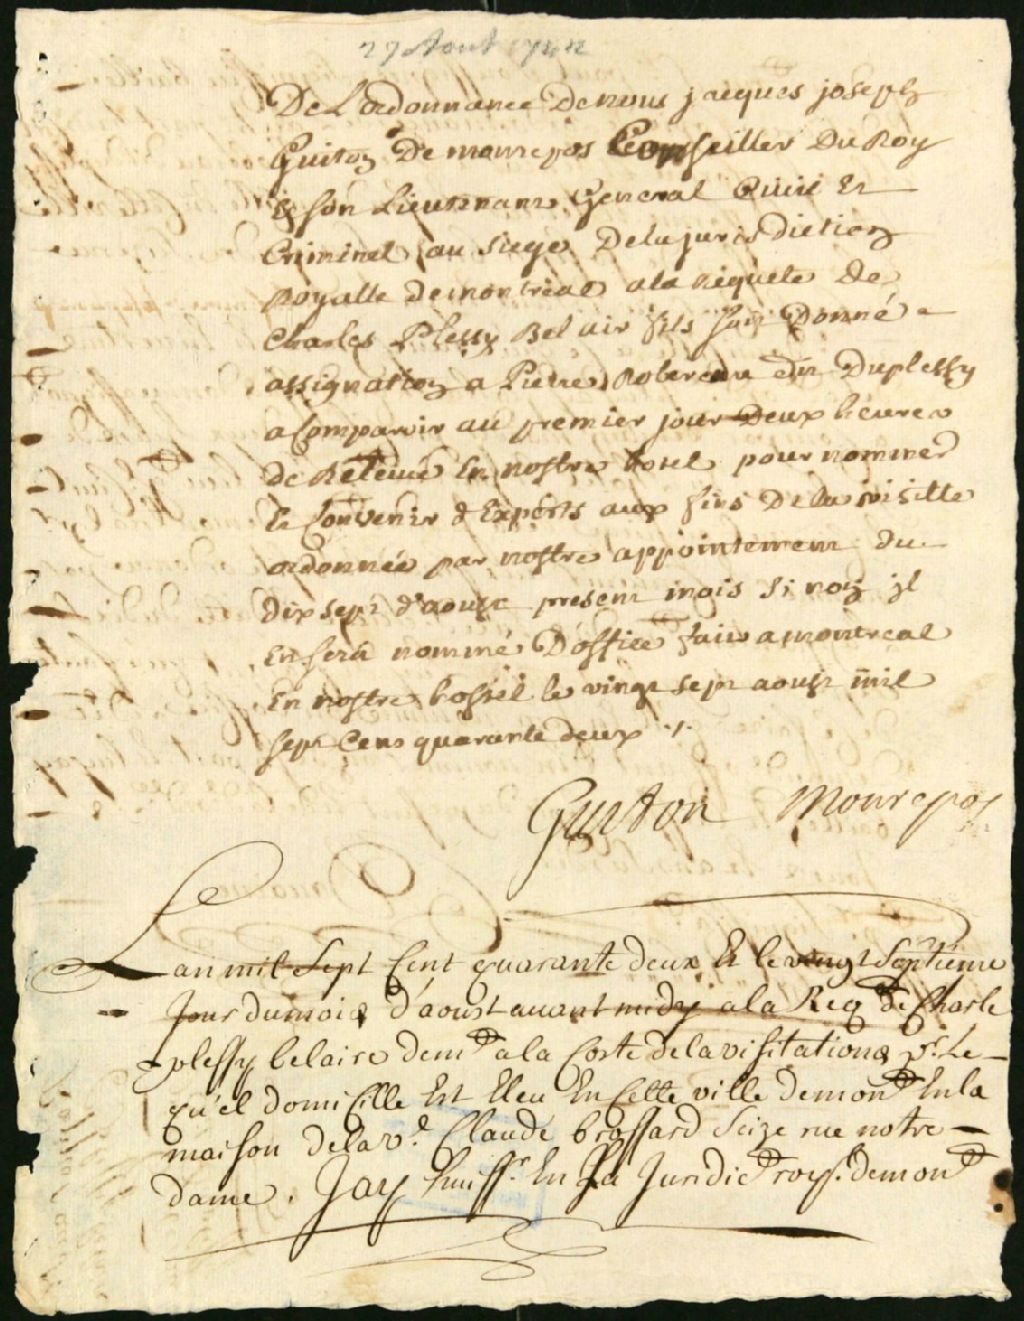 27 Aout 1742
De L'ordonnance De nous jacques joseph
Guiton De monrepos Conseiller Du Roy
& son Lieutenant General Civil Et
Criminel au siege De la jurisdiction
Royalle de montreal a la Requete de
Charles Plessy Bel air fils soit Donné
assignation a Pierre Robereau dit Duplessy
a Comparoir au premier jour Deux heures
de Relevé En nostre hotel pour nommer
& Convenir d'Experts aux fins De la visitte
ordonnée par nostre appointement du
dix sept d'aoust present mois si non jl
En sera nommé D'office fait a montreal
En nostre hostel le vingt sept aoust mil
sept Cens quarante deux ./.
Guiton Monrepos
Lan mil Sept Cent quarante deux Et le vingt Septieme
Jour du mois d'aoust avant midy a la Req de Charle
plessy belaire demt a la Coste de la visitation pr Le
qu'el domicille Est Eleu En Cette ville de mon En la
maison de la ve Claude brossard Seize rue notre
dame. Jay huissr En La Juridic roy. de mon